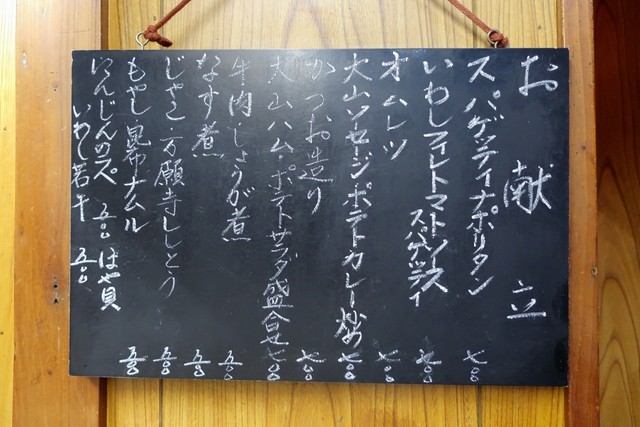 お献立
スパゲッティナポリタン 七〇〇
いわしフィレトマトソース
スパゲッティ 七〇〇
オムレツ 七〇〇
大山ソセージポテトカレー炒め 七〇〇
かつお造り 七〇〇
大山ハム・ポテトサラダ盛合せ 七〇〇
牛肉・しょうが煮 五〇〇
なす煮 五〇〇
じゃこ・万願寺ししとう 五〇〇
もやし昆布ナムル 五〇〇
にんじんの 五〇〇 ほや貝
いわし若干 五〇〇